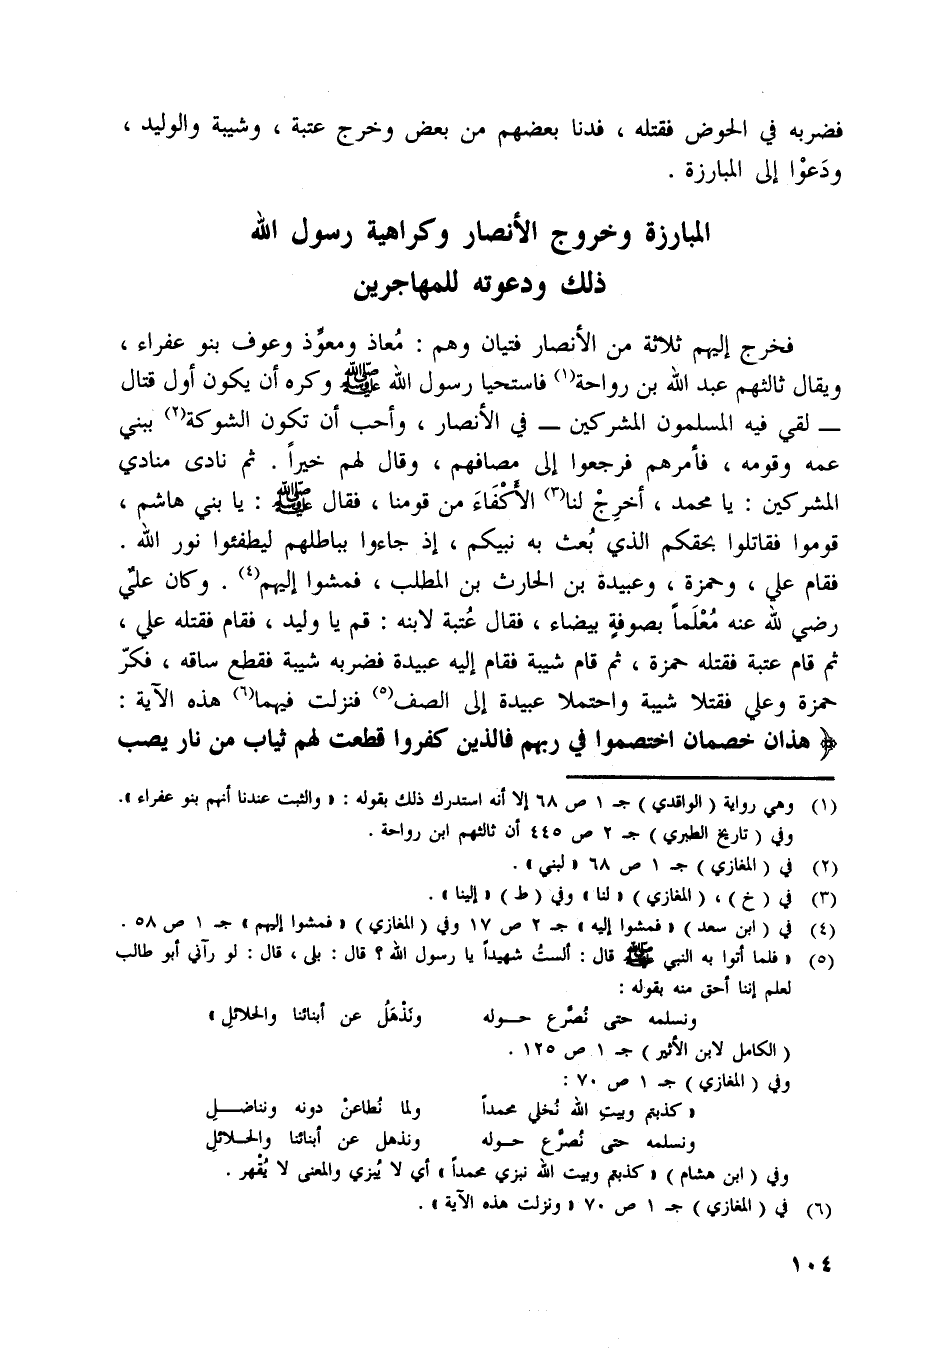 فضربه في الحوض فقتله ، فدنا بعضهم من بعض وخرج عتبة ، وشيبة والوليد ،
ودَعوْا إلى المبارزة .
المبارزة وخروج الأنصار وكراهية رسول الله
ذلك ودعوته للمهاجرين
فخرج إليهم ثلاثة من الأنصار فتيان وهم : مُعاذ ومعوِّذ وعوف بنو عفراء ،
ويقال ثالثهم عبد الله بن رواحة(١) فاستحيا رسول الله ﷺ وكره أن يكون أول قتال
ــ لقي فيه المسلمون المشركين ــ في الأنصار ، وأحب أن تكون الشوكة(٢) ببني
عمه وقومه ، فأمرهم فرجعوا إلى مصافهم ، وقال لهم خيراً . ثم نادى منادي
المشركين : يا محمد ، أخرِجْ لنا(٣) الأَكْفَاءَ من قومنا ، فقال ﷺ : يا بني هاشم ،
قوموا فقاتلوا بحقكم الذي بُعث به نبيكم ، إذ جاءوا بباطلهم ليطفئوا نور الله .
فقام علي ، وحمزة ، وعبيدة بن الحارث بن المطلب ، فمشوا إليهم(٤) . وكان عليٌّ
رضي لله عنه مُعْلَماً بصوفةٍ بيضاء ، فقال عُتبة لابنه : قم يا وليد ، فقام فقتله علي ،
ثم قام عتبة فقتله حمزة ، ثم قام شيبة فقام إليه عبيدة فضربه شيبة فقطع ساقه ، فكرّ
حمزة وعلي فقتلا شيبة واحتملا عبيدة إلى الصف(٥) فنزلت فيهما(٦) هذه الآية :
﴿ هذان خصمان اختصموا في ربهم فالذين كفروا قطعت لهم ثياب من نار يصب
(١) وهي رواية ( الواقدي ) جـ ١ ص ٦٨ إلا أنه استدرك ذلك بقوله : « والثبت عندنا أنهم بنو عفراء ».
وفي ( تاريخ الطبري ) جـ ٢ ص ٤٤٥ أن ثالثهم ابن رواحة .
(٢) في ( المغازي ) جـ ١ ص ٦٨ « لبني » .
(٣) في ( خ ) ، ( المغازي ) « لنا » وفي ( ط ) « إلينا » .
(٤) في ( ابن سعد ) « فمشوا إليه » جـ ٢ ص ١٧ وفي ( المغازي ) « فمشوا إليهم » جـ ١ ص ٥٨ .
(٥) « فلما أتوا به النبي ﷺ قال : ألستُ شهيداً يا رسول الله ؟ قال : بلى ، قال : لو رآني أبو طالب
لعلم إننا أحق منه بقوله :
ونسلمه حتى نُصرَّع حـولـه ونَذْهَلُ عن أبنائنا والحلائلِ »
( الكامل لابن الأثير ) جـ ١ ص ١٢٥ .
وفي ( المغازي ) جـ ١ ص ٧٠ :
« كذبتم وبيتِ الله نُخلي محمداً ولما نُطاعنْ دونه ونناضـلِ
ونسلمه حتى نُصرَّع حـولـه ونذهل عن أبنائنا والحـلائلِ
وفي ( ابن هشام ) « كذبتم وبيت الله نبزي محمداً » أي لا يُبزي والمعنى لا يُقْهر .
(٦) في ( المغازي ) جـ ١ ص ٧٠ « ونزلت هذه الآية » .
١٠٤